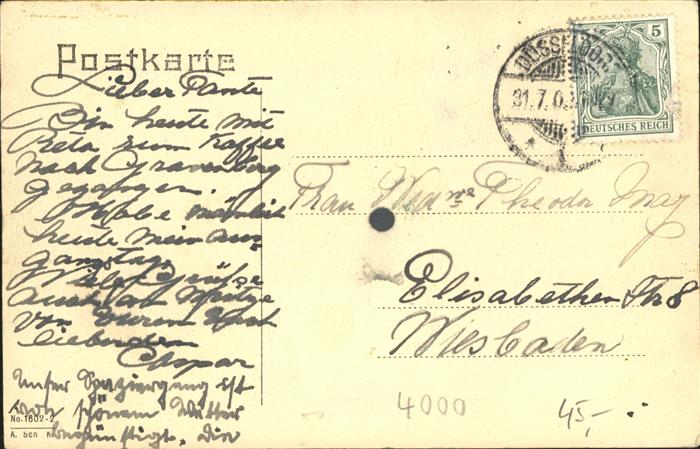 Postkarte
Lieber Tante
Bin heute mit
Reta zum Kaffee
nach Gravenberg
gegangen.
Habe nämlich
heute mein Aus
gangstag.
Viele Grüße
auch an
von Eurem Euch
liebenden
Caspar
Unser Spaziergang ist
von schönem Wetter
begünstigt. Die
No. 1602-2
A. Sch
DÜSSELDORF
31.7.0
1
5
DEUTSCHES REICH
Frau Wwe Theodor May
Elisabethen Str 8
Wiesbaden
4000
45,-